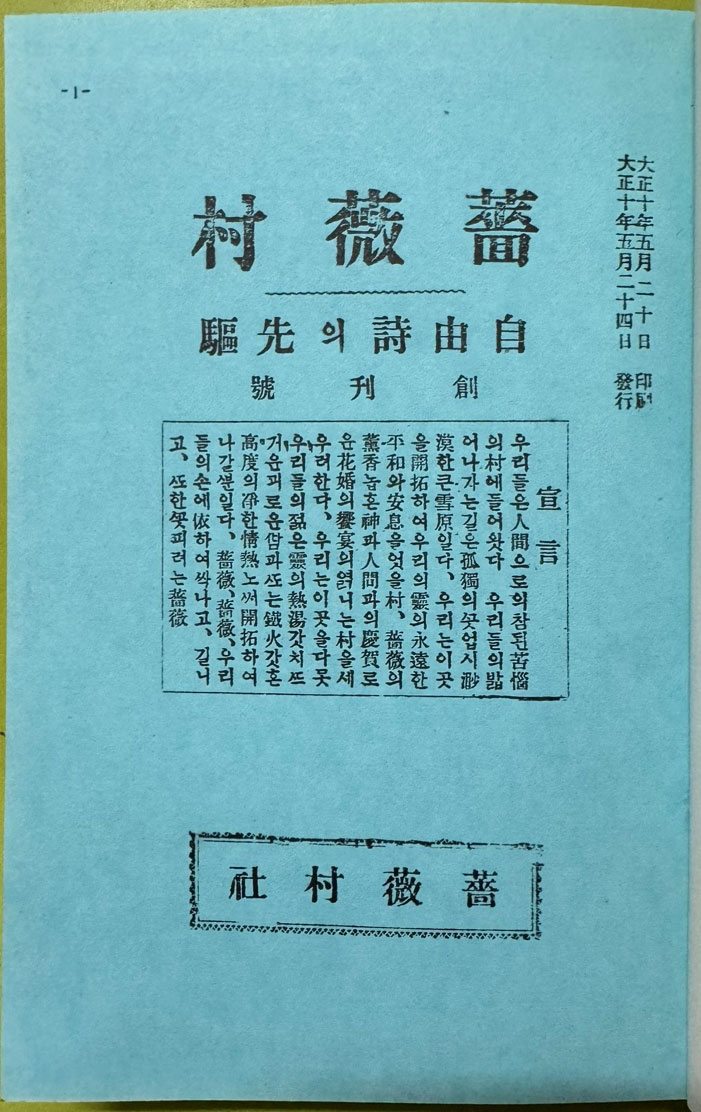 -1-
大正十年五月二十日 印刷
大正十年五月二十四日 發行
薔薇村
自由詩의先驅
創刊號
宣言
우리들은人間으로의참된苦惱
의村에들어왓다 우리들의밟
어나가는길은孤獨의ᄭᅳᆺ업시渺
漠한큰雪原일다、우리는이곳
을開拓하여우리의靈의永遠한
平和와安息을엇을村、薔薇의
薰香놉흔神과人間과의慶賀로
운花婚의饗宴의열니는村을세
우려한다、우리는이곳을다못
우리들의젊은靈의熱湯갓치ᄯᅳ
거운괴로운ᄯᅡᆷ과ᄯᅩ는鐵火갓흔
高度의淨한情熱노써開拓하여
나갈ᄲᅮᆫ일다、薔薇、薔薇、우리
들의손에依하여싹나고、길니
고、ᄯᅩ한ᄭᅩᆺ피려는薔薇
薔薇村社